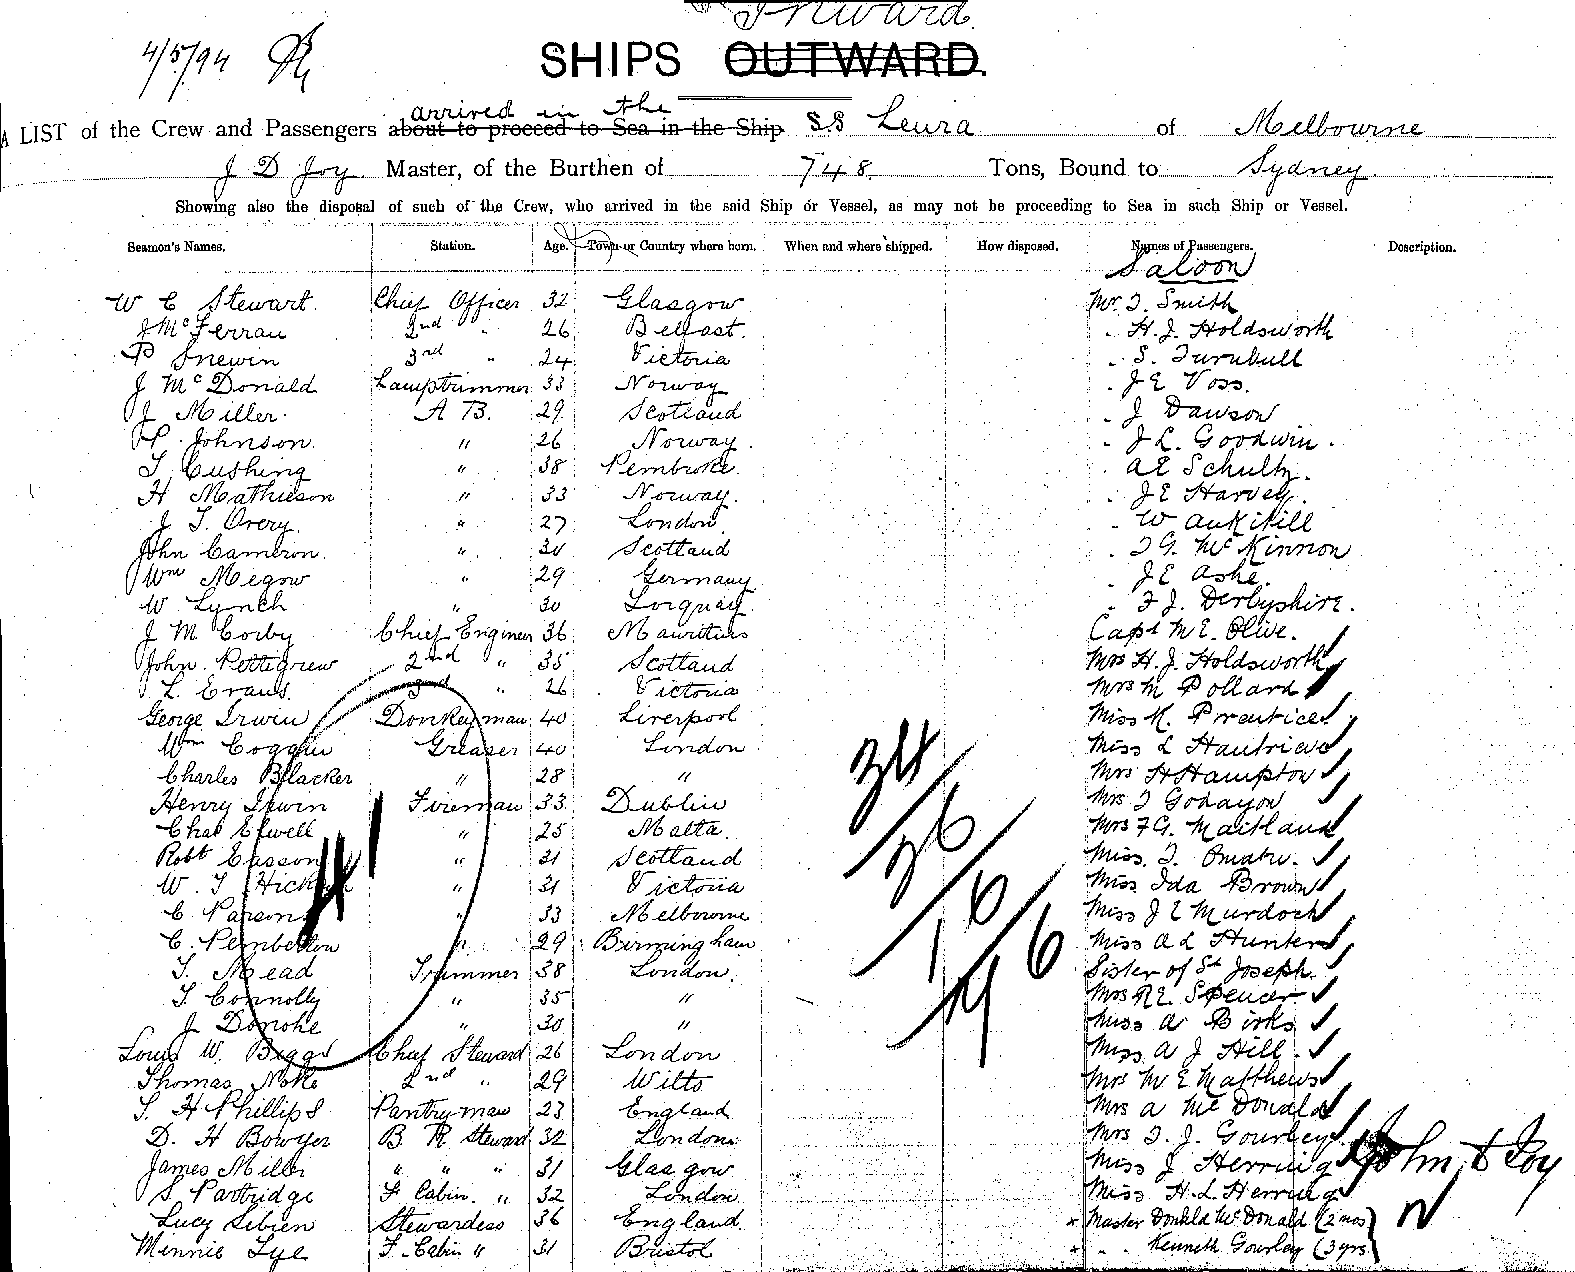 Inward.
4/5/94
SHIPS OUTWARD.
arrived in the
A LIST of the Crew and Passengers about to proceed to Sea in the Ship SS Leura of Melbourne
J D Joy Master, of the Burthen of 748 Tons, Bound to Sydney
Showing also the disposal of such of the Crew, who arrived in the said Ship or Vessel, as may not be proceeding to Sea in such Ship or Vessel.
Seamon's Names. Station. Age. Town or Country where born. When and where shipped. How disposed. Names of Passengers. Description.
Saloon
W C Stewart. Chief Officer 32 Glasgow Mr. T. Smith
J McFerran 2nd " 26 Belfast. " H. J. Holdsworth
P Snewin 3rd " 24 Victoria " S. Turnbull
J McDonald Lamptrimmer 33 Norway " J E Voss.
J Miller. A B. 29 Scotland " J Dawson
P. Johnson. " 26 Norway. " J L. Goodwin.
T Cushing " 38 Pembroke. A E Schultz.
H Mathieson " 33 Norway. " J E Harvey.
J T. Overy. " 27 London " W
John Cameron. " 30 Scotland " T G. McKinnon
Wm Megow " 29 Germany " J E Ashe.
W. Lynch " 30 Torquay. " F J. Derbyshire.
J M Corby Chief Engineer 36 Mauritius Capt M E. Olive.
John. Pettigrew 2nd " 35 Scotland Mrs H. J. Holdsworth
L. Evans. 3rd " 26 Victoria Mrs M Pollard
George Irwin Donkeyman 40 Liverpool Miss K. Prentice
Wm Coggin Greaser 40 London Miss L
Charles Blacker " 28 " Mrs H Hampton
Henry Irwin Fireman 33 Dublin Mrs T
Chas Elwell " 25 Malta. Mrs F G. Maitland
Robt Casson " 31 Scotland Miss. T.
W. T Hick " 31 Victoria Miss Ida Brown
C Parsons " 33 Melbourne Miss J E Murdoch
C. Pemberton " 29 Birmingham Miss A L Hunter
T. Mead Trimmer 38 London. Sister of St Joseph.
T Connolly " 35 " Mrs R E. Spencer
J. Donohe " 30 " Miss A Birks
Louis W. Biggs Chief Steward 26 London Miss A J Hill.
Thomas Noke 2nd " 29 Wilts Mrs M E Matthews
T. H Phillips Pantryman 23 England Mrs A McDonald
D. H Bowyer B. R Steward 32 London Mrs T. J. Gourley
James Miller " " " 31 Glasgow Miss J Herring John D Joy
S. Partridge F Cabin. " 32 London Miss H. L Herring
Lucy Sibien Stewardess 36 England. Master Donald McDonald (2 mos)
Minnie Tye F. Cabin " 31 Bristol " Kenneth Gourley (3 yrs)
34
36
1 6